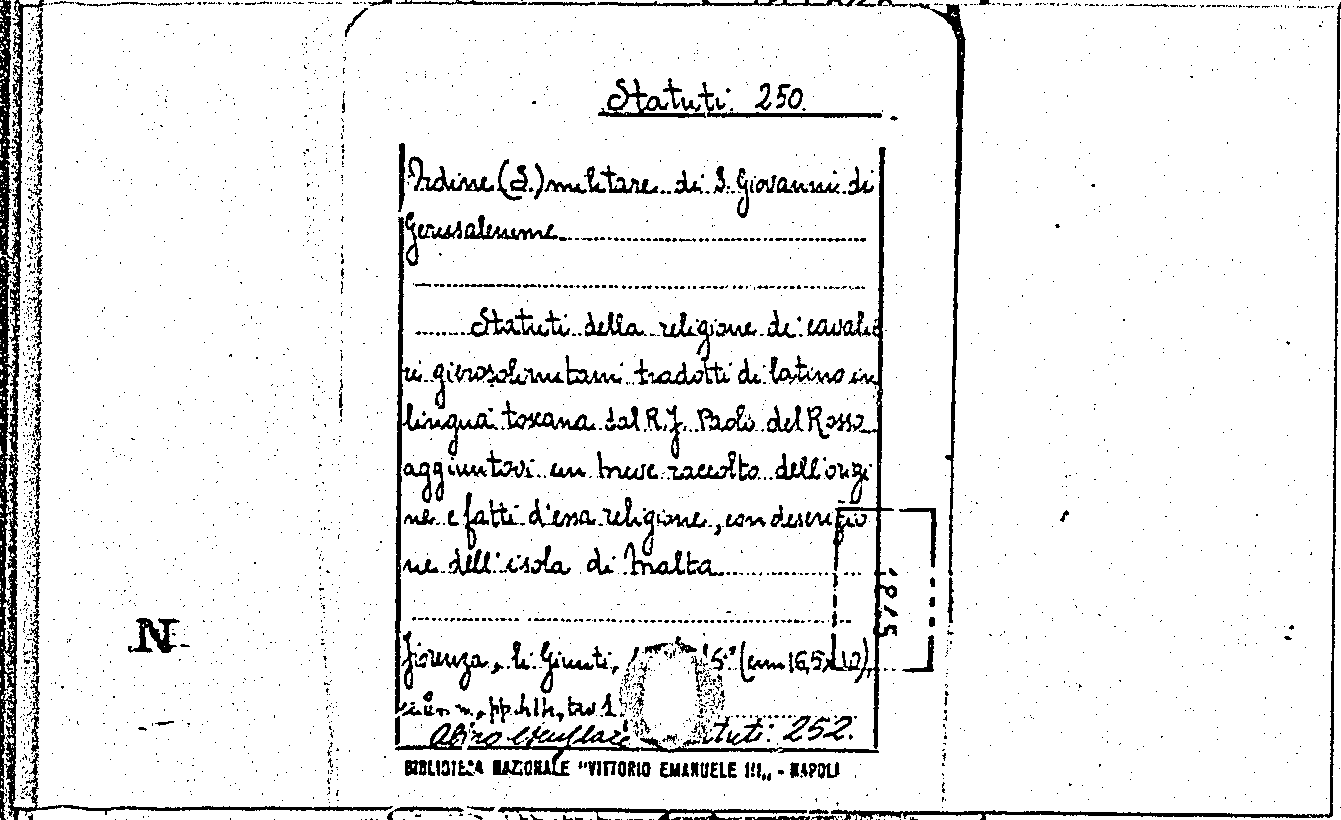 Statuti 250.
Ordine (S.) militare di S. Giovanni di
Gerusalemme
Statuti della religione de' cavalie
ri gierosolimitani tradotti di latino in
lingua toscana dal R. F. Paolo del Rosso
aggiuntovi un breve raccolto dell'origi
ne e fatti d'essa religione, con descrizio
ne dell'isola di Malta
Fiorenza, li Giunti, (cm 16,5x10),
Altro esemplare 252.
BIBLIOTECA NAZIONALE "VITTORIO EMANUELE III" - NAPOLI
N